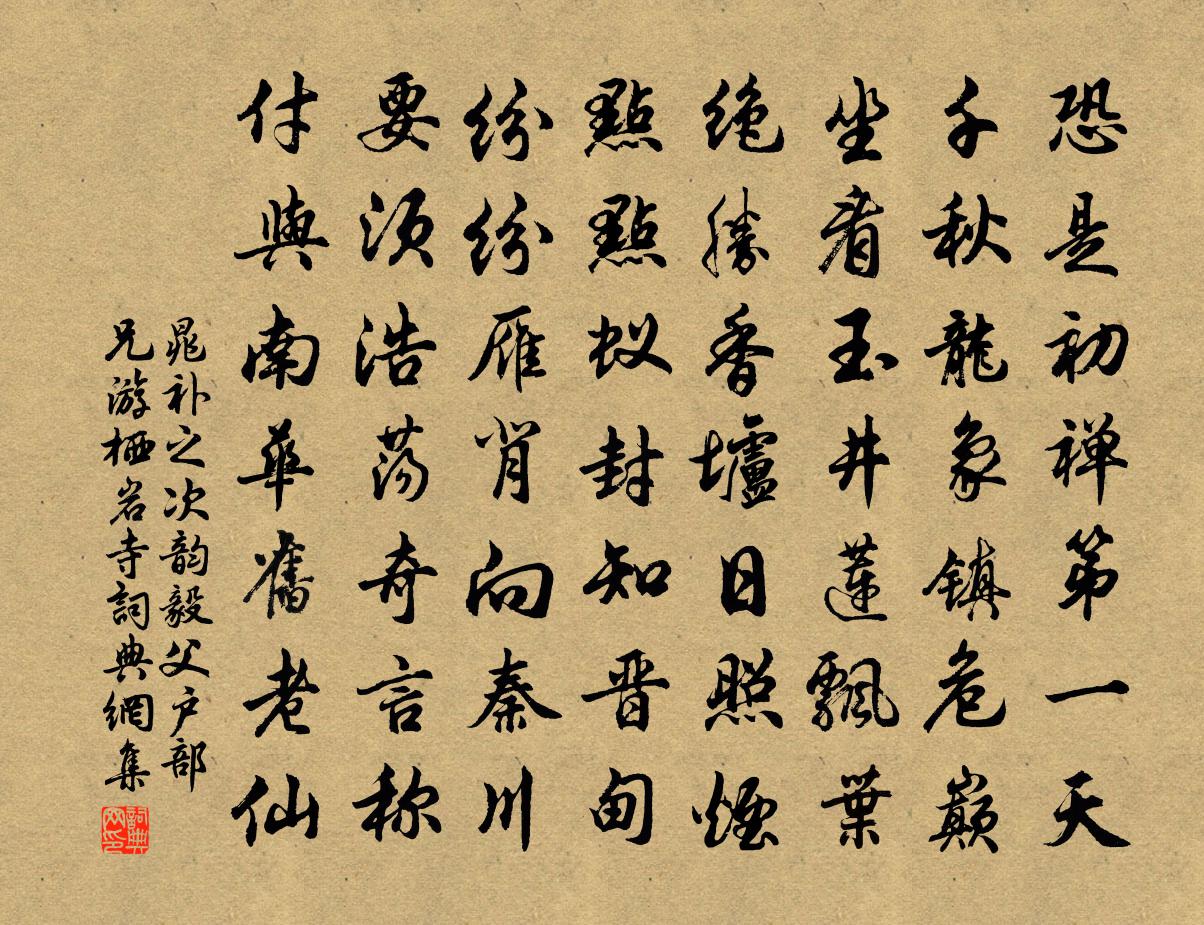 恐是初禅第一天
千秋龍象镇危巅
坐看玉井蓮飄葉
绝勝香壚日照煙
點點蚁封知晋甸
纷纷雁背向秦川
要须浩荡奇言称
付與南華舊老仙
晁补之次韵毅父户部
兄游栖岩寺詞典網集
詞典网印